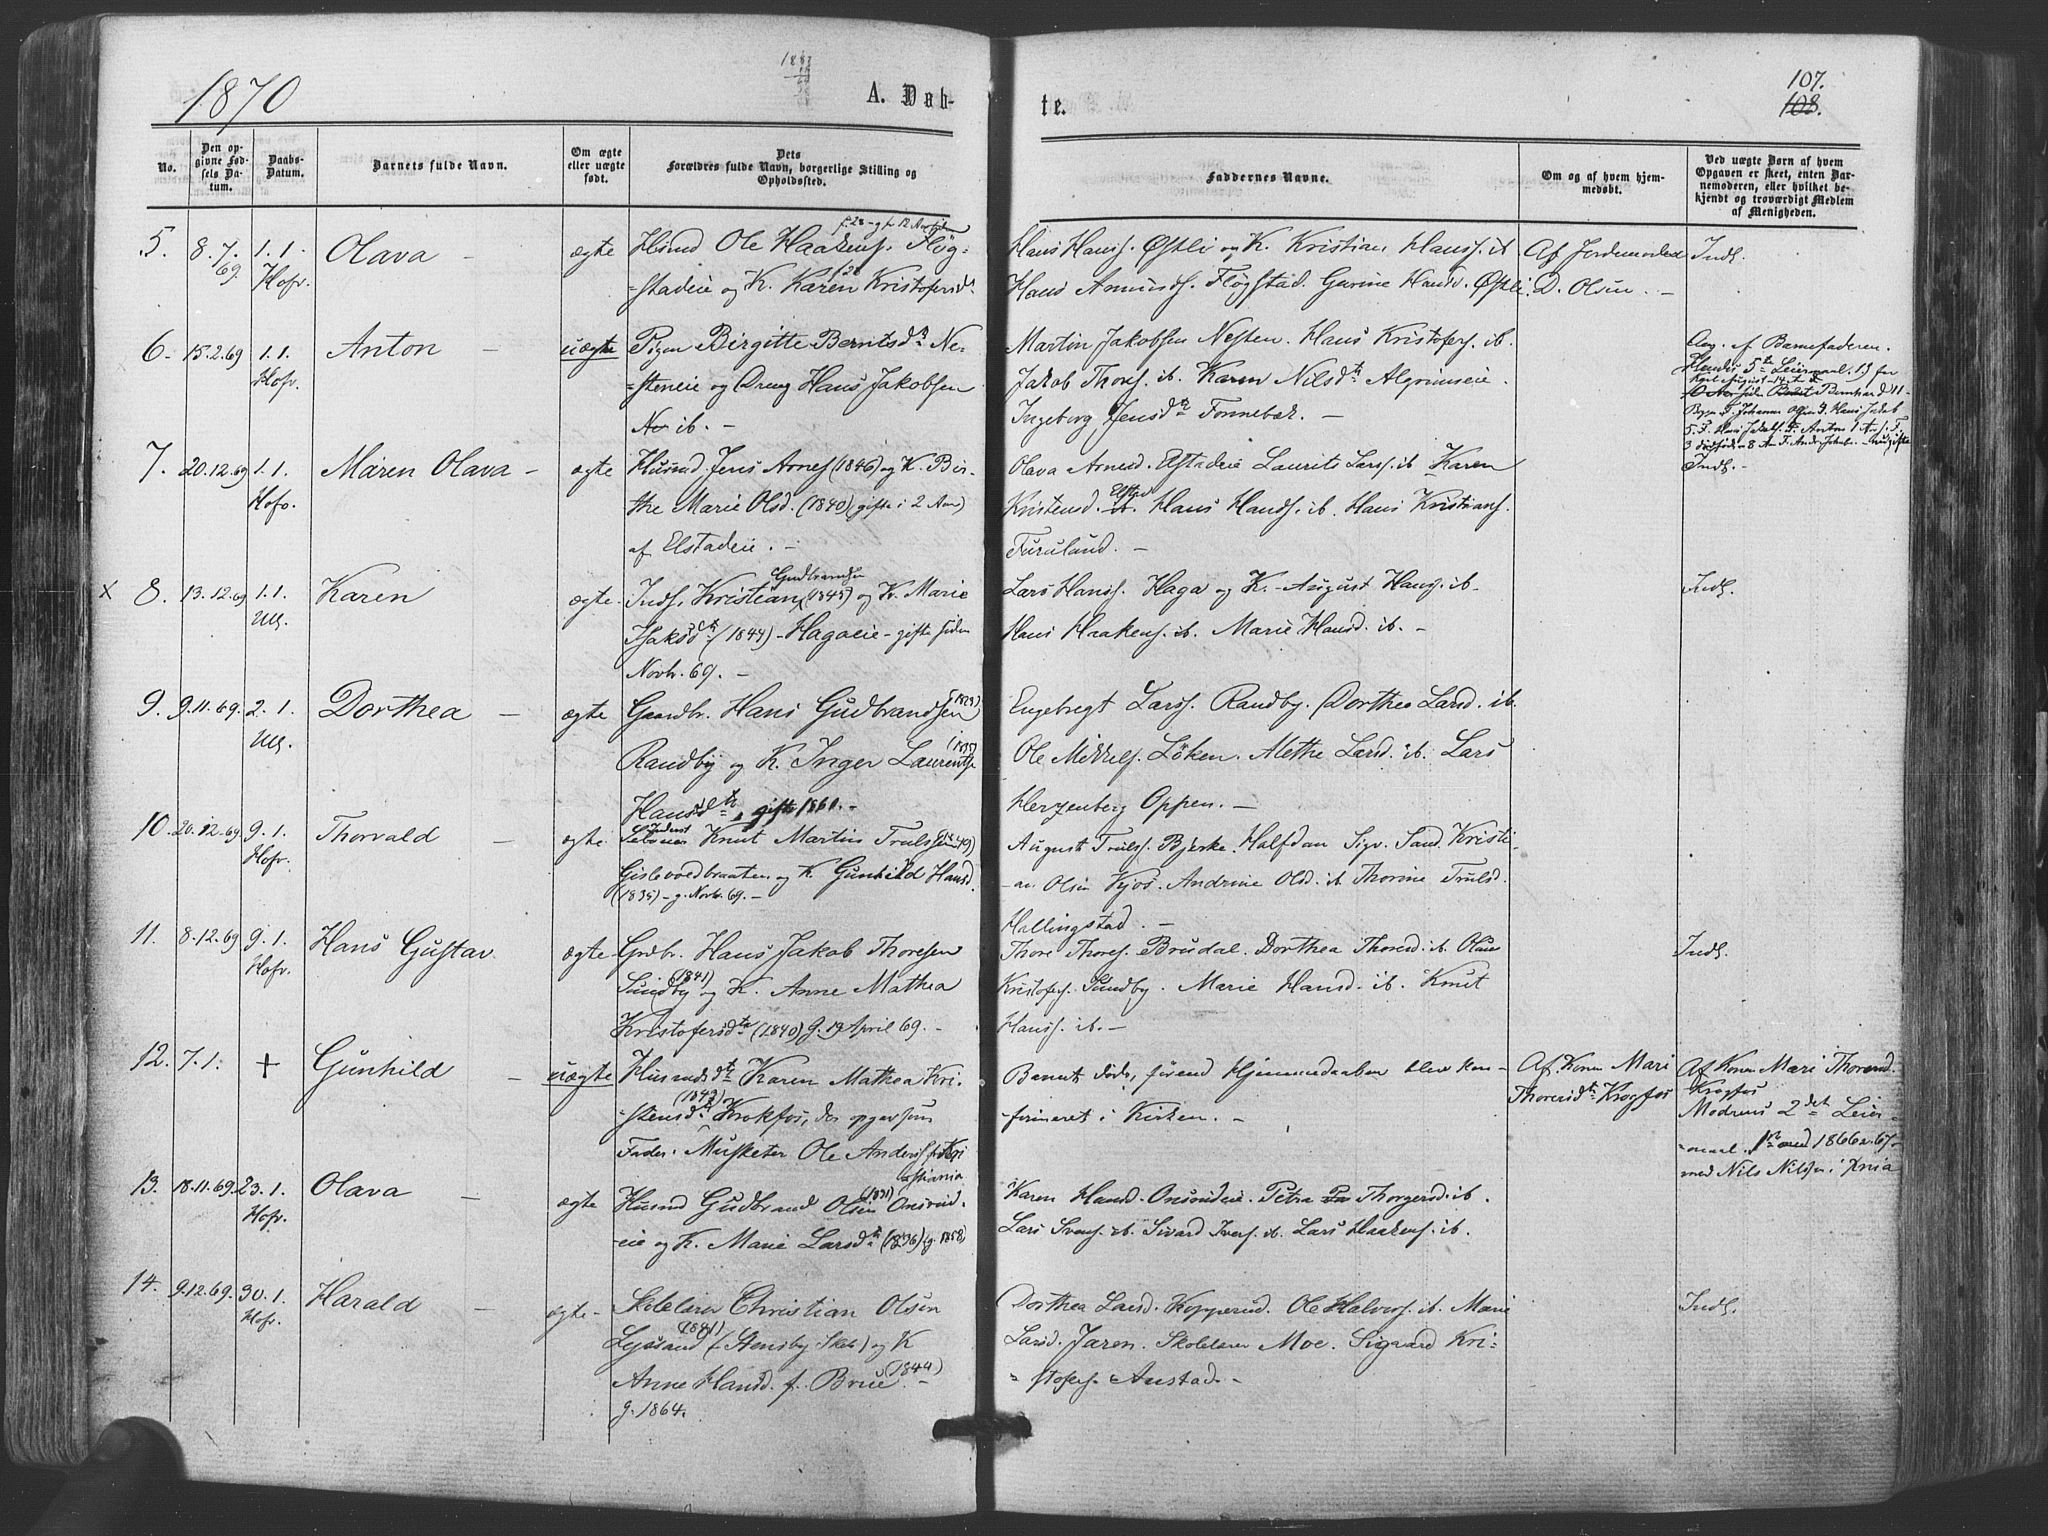 1870
A. Døb-
te.
107.
108.
No.
Den op-
givne Fød-
sels Da-
tum.
Daabs-
Datum.
Barnets fulde Navn.
Om ægte
eller uægte
født.
Dets
Forældres fulde Navn, borgerlige Stilling og
Opholdssted.
Faddernes Navne.
Om og af hvem hjem-
medøbt.
Ved uægte Børn af hvem
Opgaven er skeet, enten Bar-
nemoderen, eller hvilket be-
kjendt og troværdigt Medlem
af Menigheden.
5. 8.7.69. 1.1 Hofv. Olava – ægte
Husmd Ole Haakens. Fløg-
=stadeie og K. Karen Kristofersd.
Hans Hanss. Østli og K. Kristian Hanss. ib
Hans Amunds. Fløgstad. Gurine Hansd. Østli.
Af Jordemoder
D. Olsen. –
Indl.
6. 15.2.69 1.1. Hofv. Anton – uægte
Pigen Birgitte Berntsdtr Ne-
=steneie og Dreng Hans Jakobsen
Ne ib. –
Martin Jakobsen Nesten. Hans Kristofers. ib.
Jakob Thores. ib. Karen Nilsdtr Algrimseie.
Ingeborg Jensdtr Tonnebæk. –
Ang. af Barnefaderen.
Hendes 5te Leiermaal.
7. 20.12.69 1.1. Hofv. Maren Olava – ægte
Husmd Jens Arnes (1846) og K. Bir-
the Marie Olsd. (1840) (gifte i 2 Aar)
af Elstadeie. –
Olava Arnesd. Elstadeie Laurits Larss. ib Karen
Kristensd. Elstad Hans Hansds. ib. Hans Kristians.
Furuland. –
Indl. –
x 8. 13.12.69 1.1. Ull. Karen ægte.
Inds. Kristian Gudbrandsen (1845) og K. Marie
Isaksdtr (1844) – Hagaeie – gifte siden
Novbr. 69. –
Lars Hanss. Haga og K. August Hanss. ib.
Hans Haakens. ib. Marie Hansd. ib. –
Indl.
9. 9.11.69. 2.1. Ull. Dorthea – ægte
Gaardbr. Hans Gudbrandsen (1829)
Randby og K. Inger Laurentse (1835)
Hansdtr, gifte 1860. –
Engebregt Larss. Randby. Dorthea Larsd. ib.
Ole Mikkels. Løken. Alethe Larsd. ib. Lars
Herzenberg Oppen. –
10. 20.12.69 9.1. Hofv. Thorvald ægte.
Inderst Knut Martin Trulssen (1849)
Gislevoldbraaten og K. Gunhild Hansd.
(1835) – g. Novbr. 69. –
August Trulss. Bjerke. Halfdan Sigv. Sand. Kristi-
-an Olsen Kjos. Andrine Olsd. ib Thorine Trulsd.
Hallingstad. –
11. 8.12.69 9.1. Hofv. Hans Gustav ægte
Grdbr. Hans Jakob Thoresen
Sundby (1841) og K. Anne Mathea
Kristofersdtr (1840) g. 19 April 69. –
Thore Thores. Brudal. Dorthea Thoresd. ib. Olaus
Kristofers. Sundby. Marie Hansd. ib. Knut
Hanss. ib. –
Indl.
12. 7.1. + Gunhild – uægte
Husmdsdtr Karen Mathea Kri-
=stensdtr (1843) Krokfos, der opgav som
Fader: Musketer Ole Anders. fra Kri
stiania
Barnet døde, førend Hjemmedaaben blev kon-
firmeret i Kirken. –
Af Konen Mari
Thoresdtr Krogfos
Af Konen Mari Thoresd.
Krogfos
Modrens 2det Leier-
=maal. 1ste med 1866 a 67
med Nils Nilsen i Xnia
13. 18.11.69 23.1. Hofv. Olava – ægte
Husmd Gudbrand Olsen (1831) Onsrud-
eie og K. Marie Larsdtr (1836) (g. 1858)
Karen Hansd. Onsrudeie. Petra Thorgersd. ib.
Lars Svens. ib. Sivard Ivers. ib. Lars Haakens. ib.
14. 9.12.69. 30.1. Hofv. Harald – ægte.
Skolelærer Christian Olsen
Lysland (1841) (Stensby Skole) og K
Anne Hansd. f. Brue. (1844) –
g. 1864.
Dorthea Larsd. Kopperud. Ole Halvors. ib. Marie
Larsd. Jaren. Skolelærer Moe. Sigvard Kri-
=stofers. Austad. –
Indl.